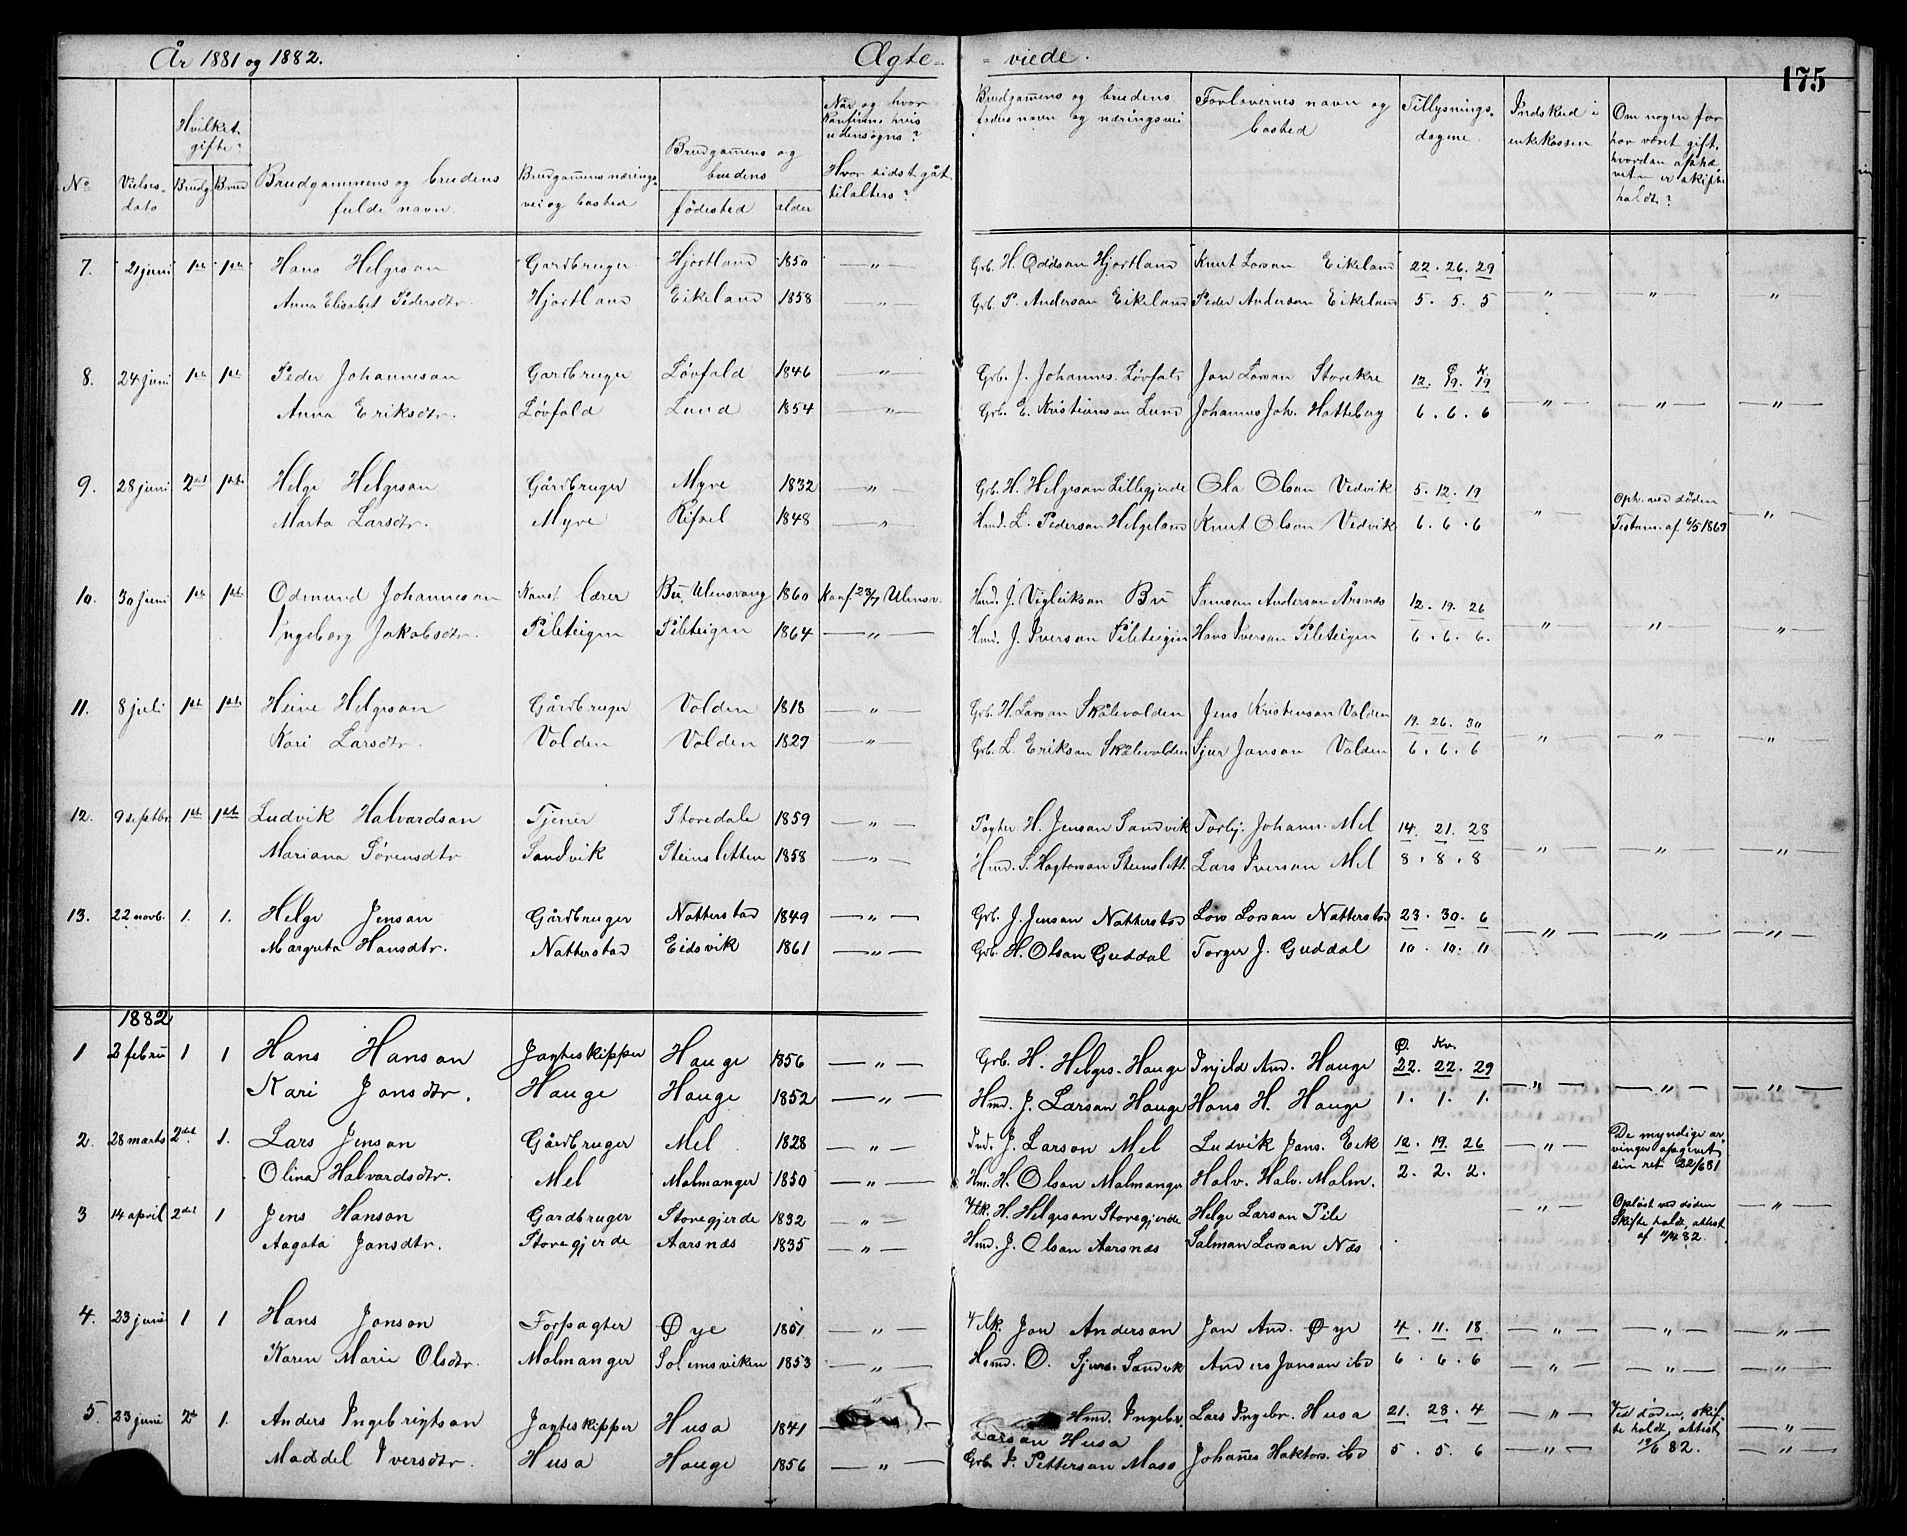 År 1881 og 1882. Ægte- -viede. 175
No
Vielses-
dato
Hvilket
gifte?
Brudg Brud
Brudgammens og brudens
fulde navn.
Brudgammens nærings-
vei og bosted
Brudgammens og
brudens
fødested alder
Når og hvor
udensogns?
Hvor sidst gåt
tilalters?
Brudgammens og brudens
fedres navn og næringsvei
Forlovernes navn og
bosted
Tillysnings-
dagene.
Indskud i
enkekassen
Om nogen før
har været gift,
hvordan ophæ-
vet er skifte
holdt?
7. 21 juni 1ste 1ste Hans Helgeson Gardbruger Hjortland 1850 — " — Grb. H. Oddson Hjortland Knut Larson Eikeland 22. 26. 29
Anna Elisabet Pedersdtr. Hjortland Eikeland 1858 — " — Grb. P. Anderson Eikeland Peder Anderson Eikeland 5. 5. 5 — " — — " — — " —
8. 24 juni 1ste 1ste Peder Johanneson Gardbruger Løvfald 1846 — " — Grb. J. Johannes. Løvfald Jon Larson Storekre 12. 19. 19
Anna Eriksdtr. Løvfald Lund 1854 — " — Grb. E. Kristianson Lund Johannes Joh. Hatteberg 6. 6. 6 — " — — " — — " —
9. 28 juni 2det 1ste Helge Helgeson Gårdbruger Myre 1832 — " — Grb. H. Helgeson Lillegjerde Ola Olson Vedvik 5. 12. 19 Oph. ved døden
Marta Larsdtr. Myre 1848 — " — Hmd. L. Pederson Helgeland Knut Olson Vedvik 6. 6. 6 — " — Testam. af 6/5 1869 — " —
10. 30 juni 1ste 1ste Odmund Johanneson lærer Bu, Ulensvang 1860 Konf. Ulensv. Hmd. J. Vigleikson Bu Samson Anderson Årsnes 12. 19. 26
Ingeborg Jakobsdtr. Pileteigen Pileteigen 1864 — " — Hmd. J. Iverson Pileteigen Hans Iverson Pileteigen 6. 6. 6. — " — — " — — " —
11. 8 juli 1ste 1ste Heine Helgeson Gårdbruger Volden 1818 — " — Grb. H. Larson Skålevolden Jens Kristenson Volden 19. 26. 30
Kari Larsdtr. Volden Volden 1829 — " — Grb. L. Erikson Skålevolden Sjur Janson Volden 6. 6. 6 — " — — " — — " —
12. 9 septbr 1ste 1ste Ludvik Halvardson Tjener Storedale 1859 — " — Pagter H. Jenson Sandvik Torbj. Johann. Mel 14. 21. 28
Mariana Sørensdtr Sandvik Steinsletten 1858 — " — Hmd. S. Hagtorson Steinslett. Lars Iverson Mel 8. 8. 8 — " — — " — — " —
13. 22 novb. 1. 1. Helge Jenson Gårdbruger Natterstad 1849 — " — Grb. J. Jenson Natterstad Lars Larson Natterstad 23. 30. 6
Margreta Hansdtr. Natterstad Eidsvik 1861 — " — Grb. H. Olson Guddal Torger J. Guddal 10. 10. 11 — " — — " — — " —
1882
1 3 febru 1 1 Hans Hanson Jagteskipper Hauge 1856 — " — Grb. H. Helges. Hauge Injeld And. Hauge Ø. Kv. 22. 22. 29
Kari Jonsdtr. Hauge Hauge 1852 — " — Hmd. J. Larson Hauge Hans H. Hauge 1. 1. 1. — " — — " — — " —
2. 28 marts 2det 1. Lars Jenson Gårdbruger Mel 1828 — " — Ind. J. Larson Mel Ludvik Jans. Eik 12. 19. 26 — " — De myndige ar-
vinger opgivet
Olina Halvardsdtr. Mel Malmanger 1850 — " — Hm. H. Olson Malmanger Halv. Halv. Malm. 2. 2. 2. sin ret 22/6 81
3 14 april 2det 1 Jens Hanson Gardbruger Storegjerde 1832 — " — H. Helgeson Storegjerde Helge Larson Pile — " — Opløst ved døden — " —
Skifte holdt, attest
Aagata Jonsdtr. Storegjerde Aarsnæs 1835 — " — Hmd. J. Olson Aarsnæs Salman Larson Næs af 11/4 82.
4. 23 juni 1 1 Hans Jonson Forpagter Øye 1851 — " — Jon Anderson Jon And. Øye 4. 11. 18 — " — — " — — " —
Karen Marie Olsdtr. Malmanger Solemsviken 1853 — " — Hsmd. O. Sjurs. Sandvik Anders Jonson ibd 6. 6. 6 — " — — " — — " —
5. 23 juni 2det 1. Anders Ingebrigtson Jagteskipper Husa 1841 — Hmd. Ingebr. Lars Ingebr. Husa 21. 28. 4 — " — Ved døden, skif-
Larson Husa te holdt, attest — " —
Maddel Iversdtr. Husa Hauge 1856 — " — Grb. I. Petterson Mass Johanes Haktors. ibd 5. 5. 6 — " — 19/6 82. — " —